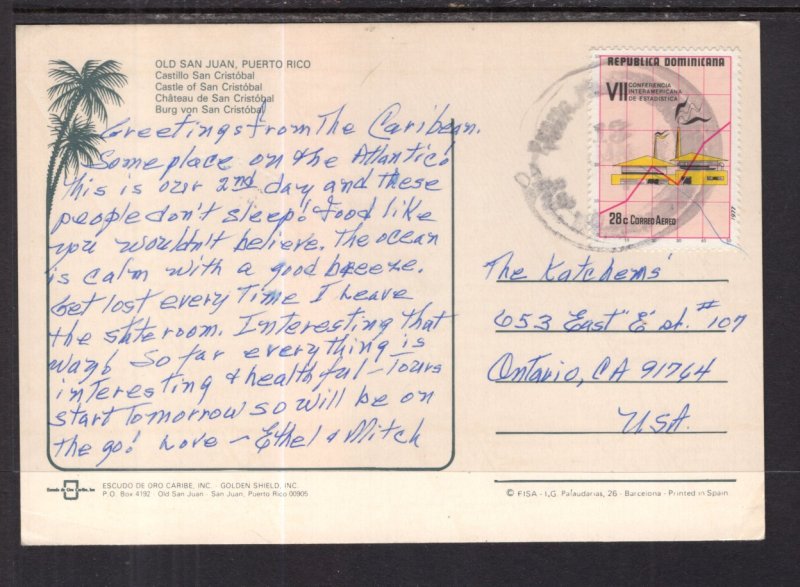 OLD SAN JUAN, PUERTO RICO
Castillo San Cristóbal
Castle of San Cristóbal
Château de San Cristóbal
Burg von San Cristóbal
Greetings from The Caribean.
Someplace on the Atlantic!
This is our 2nd day and these
people don't sleep! Food like
you wouldn't believe. The ocean
is calm with a good breeze.
Get lost every Time I Leave
the stateroom. Interesting that
way! So far everything is
interesting & healthful - Tours
start Tomorrow so will be on
the go! Love - Ethel & Mitch
REPUBLICA DOMINICANA
VII CONFERENCIA
INTERAMERICANA
DE ESTADISTICA
28c CORREO AEREO
1977
The Katchems'
653 East "E" st. #107
Ontario, CA 91764
USA.
Escudo de Oro Caribe, Inc
ESCUDO DE ORO CARIBE, INC. GOLDEN SHIELD, INC.
P.O. Box 4192 Old San Juan - San Juan, Puerto Rico 00905
© FISA - I.G. Palaudarias, 26 - Barcelona - Printed in Spain